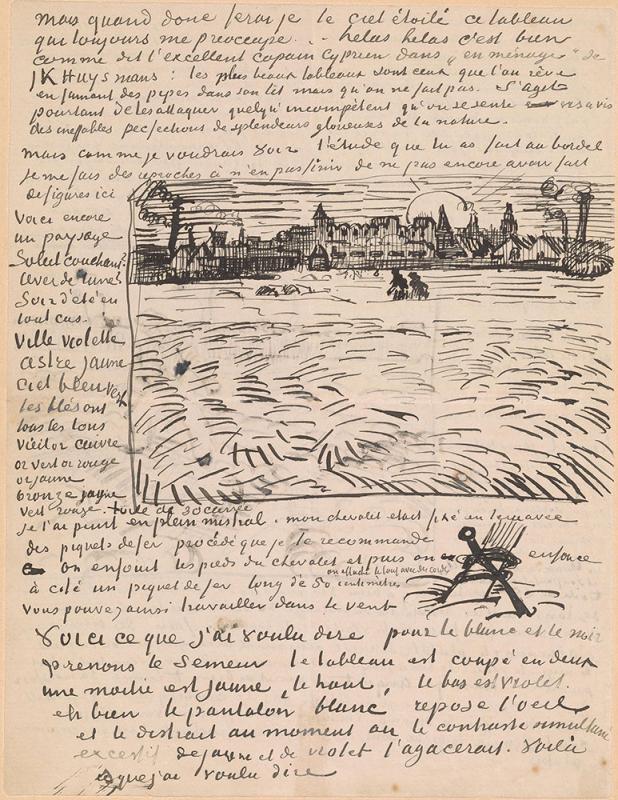 mais quand donc ferai je le ciel étoilé ce tableau
qui toujours me préoccupe. .. helas helas c'est bien
comme dit l'excellent copain Cyprien dans „en ménage" de
J K Huysmans : les plus beaux tableaux sont ceux que l'on rêve
en fumant des pipes dans son lit mais qu'on ne fait pas. S'agit
pourtant de les attaquer quelqu'incompétent qu'on se sente vis à vis
des ineffables perfections de splendeurs glorieuses de la nature.
mais comme je voudrais voir l'étude que tu as fait au bordel
je me fais des reproches à n'en pas finir de ne pas encore avoir fait
de figures ici
Voici encore
un paysage
Soleil couchant?
lever de lune?
Soir d'été en
tout cas.
Ville violette
astre jaune
ciel bleu vert
les blés ont
tous les tons
vieil or cuivre
or vert or rouge
or jaune
bronze jaune
vert rouge. toile de 30 carrée
je l'ai peint en plein mistral. mon chevalet etait fixé en terre avec
des piquets de fer procédé que je te recommande
on enfouit les pieds du chevalet et puis on enfonce
à côté un piquet de fer long de 50 centimètres
on attache le tout avec des cordes
vous pouvez ainsi travailler dans le vent
Voici ce que j'ai voulu dire pour le blanc et le noir
prenons le Semeur le tableau est coupé en deux
une moitié est jaune, le haut, le bas est violet.
eh bien le pantalon blanc repose l'oeil
et le distrait au moment ou le contraste simultané
excessif de jaune et de violet l'agacerait. Voilà
ce que j'ai voulu dire